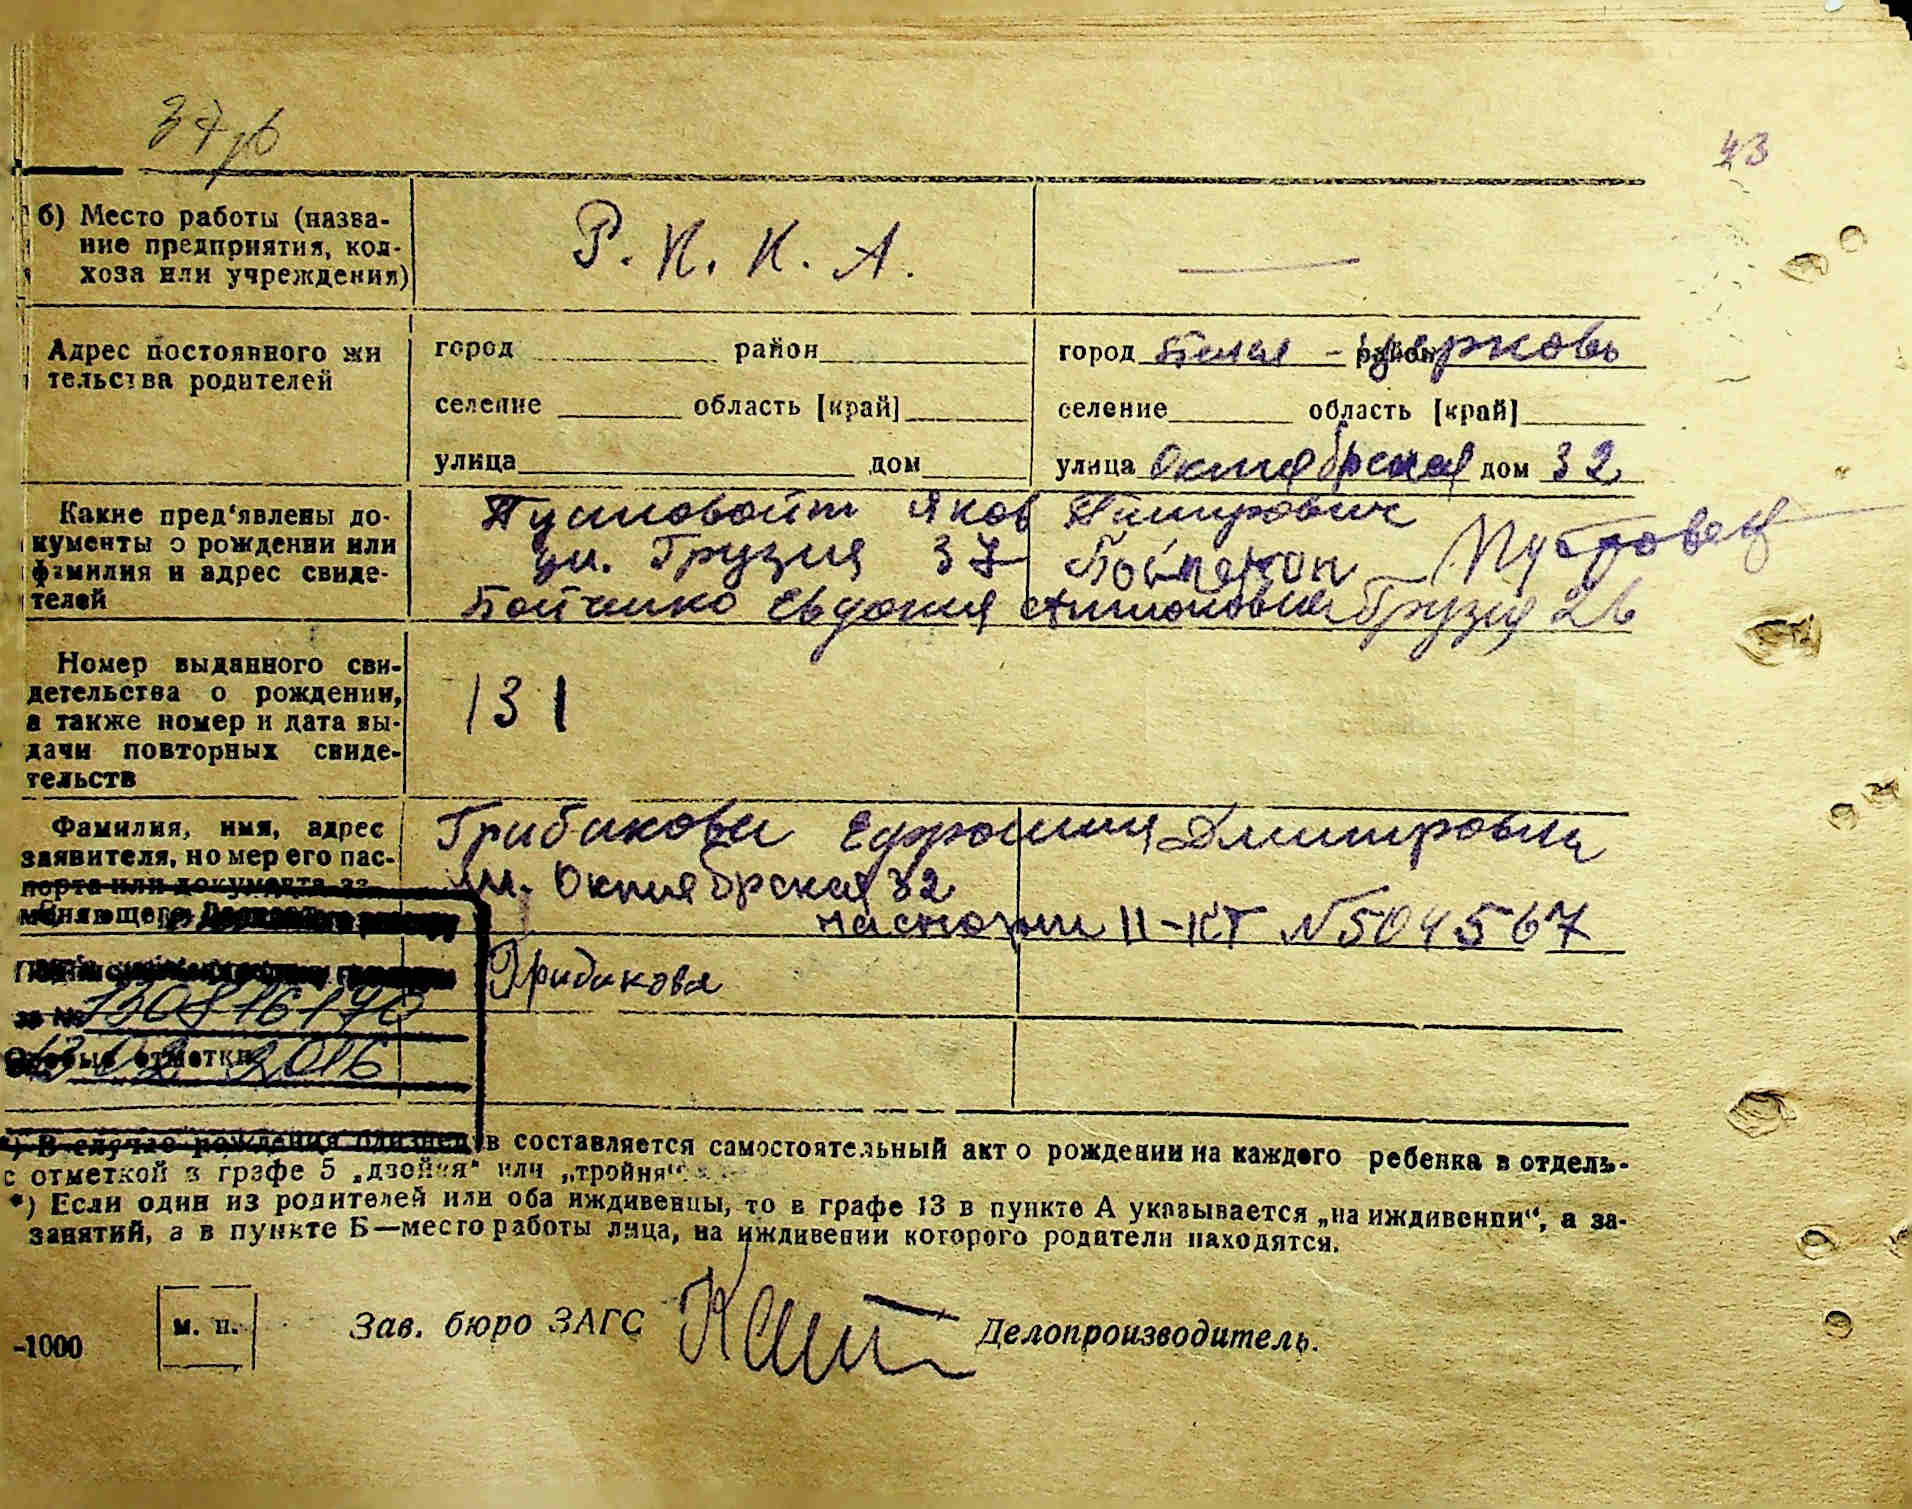 37
43
б) Место работы (назва-
ние предприятия, кол-
хоза или учреждения)
Р. К. К. А.
—
Адрес постоянного жи
тельства родителей
город район
селение область [край]
улица дом
город Белая - Церковь район
селение область [край]
улица Октябрьская дом 32
Какие пред'явлены до-
кументы о рождении или
фамилия и адрес свиде-
телей
Пустовойт Яков
ул. Грузия 37
Бойченко Евдокия Антоновна Грузия 26
Номер выданного сви-
детельства о рождении,
а также номер и дата вы-
дачи повторных свиде-
тельств
131
Фамилия, имя, адрес
заявителя, номер его пас-
порта или документа за-
меняющего
Грибакова Ефросиния Дмитровна
ул. Октябрьская 32
паспорт II-КТ №504567
Грибакова
за № 150816170
Особые отметки
2016
*) В случае рождения близнецов составляется самостоятельный акт о рождении на каждого ребенка в отдель-
с отметкой в графе 5 „двойня“ или „тройня“.
*) Если один из родителей или оба иждивенцы, то в графе 13 в пункте А указывается „на иждивении“, а за-
занятий, а в пункте Б—место работы лица, на иждивении которого родители находятся.
-1000
м. п.
Зав. бюро ЗАГС
Делопроизводитель.